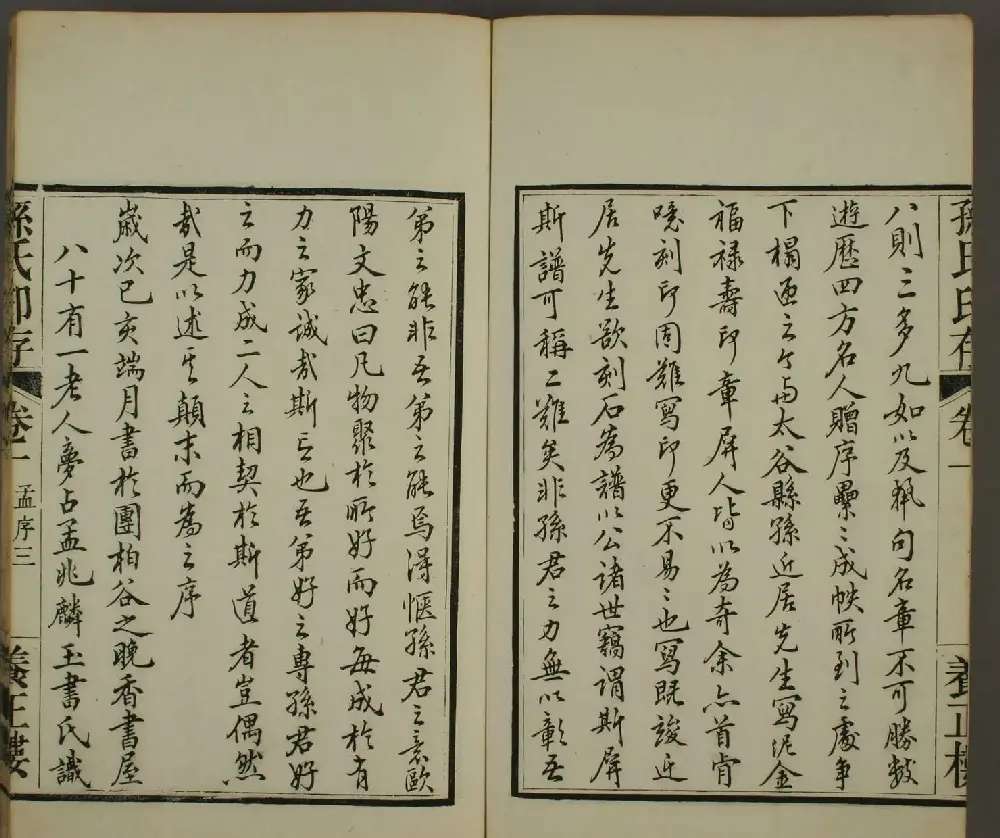 八則三多九如以及執句名章不可勝數
遊歷四方名人贈序纍〻成帙所到之處爭
下榻迎之今為太谷縣孫近居先生寫泥金
福祿壽印章屏人皆以為奇余亦首肯
噫刻印固難寫印更不易〻也寫既竣近
居先生欲刻石為譜以公諸世竊謂斯屏
斯譜可稱二難矣非孫君之力無以彰吾
孫氏印存
卷一
養正樓
第之能非吾第之能烏得愜孫君之意歐
陽文忠曰凡物聚於所好而好每成於有
力之家誠哉斯言也吾第好之專孫君好
之而力成二人之相契於斯道者豈偶然
哉是以述其顛末而為之序
歲次己亥端月書於團柏谷之晚香書屋
八十有一老人夢占孟兆麟玉書氏識
孫氏印存
卷一
孟序三
養正樓